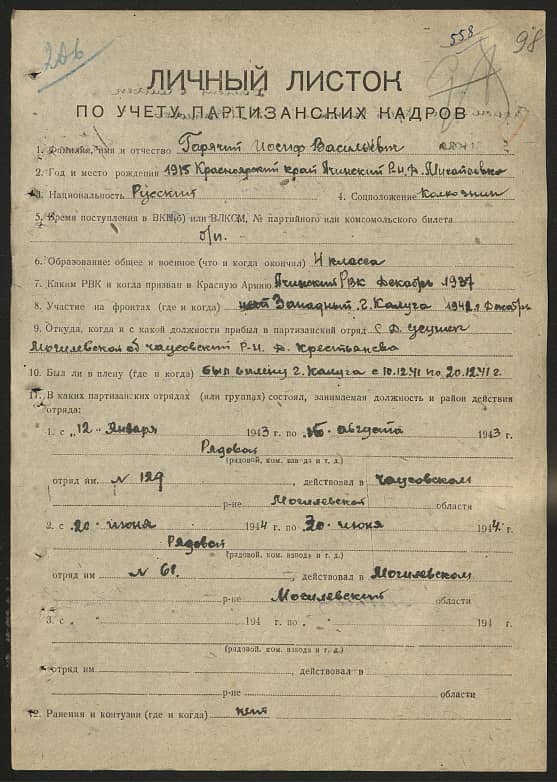 206
558
98
ЛИЧНЫЙ ЛИСТОК
ПО УЧЕТУ ПАРТИЗАНСКИХ КАДРОВ
1. Фамилия, имя и отчество Горячий Иосиф Васильевич
2. Год и место рождения 1915 Красноярский край Ачинский Р-н, д.
3. Национальность Русский 4. Соцположение Колхозник
5. Время поступления в ВКП(б) или ВЛКСМ, № партийного или комсомольского билета
б/п.
6. Образование: общее и военное (что и когда окончил) 4 класса
7. Каким РВК и когда призван в Красную Армию Ачинский РВК декабрь 1937
8. Участие на фронтах (где и когда) Западный г. Калуга 1941 г декабрь
9. Откуда, когда и с какой должности прибыл в партизанский отряд с д.
Могилевской об Чаусовский Р-н д.
10. Был ли в плену (где и когда) был в плену г. Калуга с 10.12.41 по 20.12.41 г.
11. В каких партизанских отрядах (или группах) состоял, занимаемая должность и район действия
отряда:
1. с „12“ Января 1943 г. по августа 1943 г.
Рядовой
(рядовой, ком. взвода и т. д.)
отряд им. N 129, действовал в Чаусовском
р-не Могилевской области
2. с 20 июня 1944 г. по 30 июня 1944 г.
Рядовой
(рядовой, ком. взвода и т. д.)
отряд им N 61, действовал в Могилевском
р-не Могилевский области
3. с 194 г. по 194 г.
(рядовой, ком. взвода и т. д.)
отряд им., действовал в
р-не области
12. Ранения и контузии (где и когда) нет